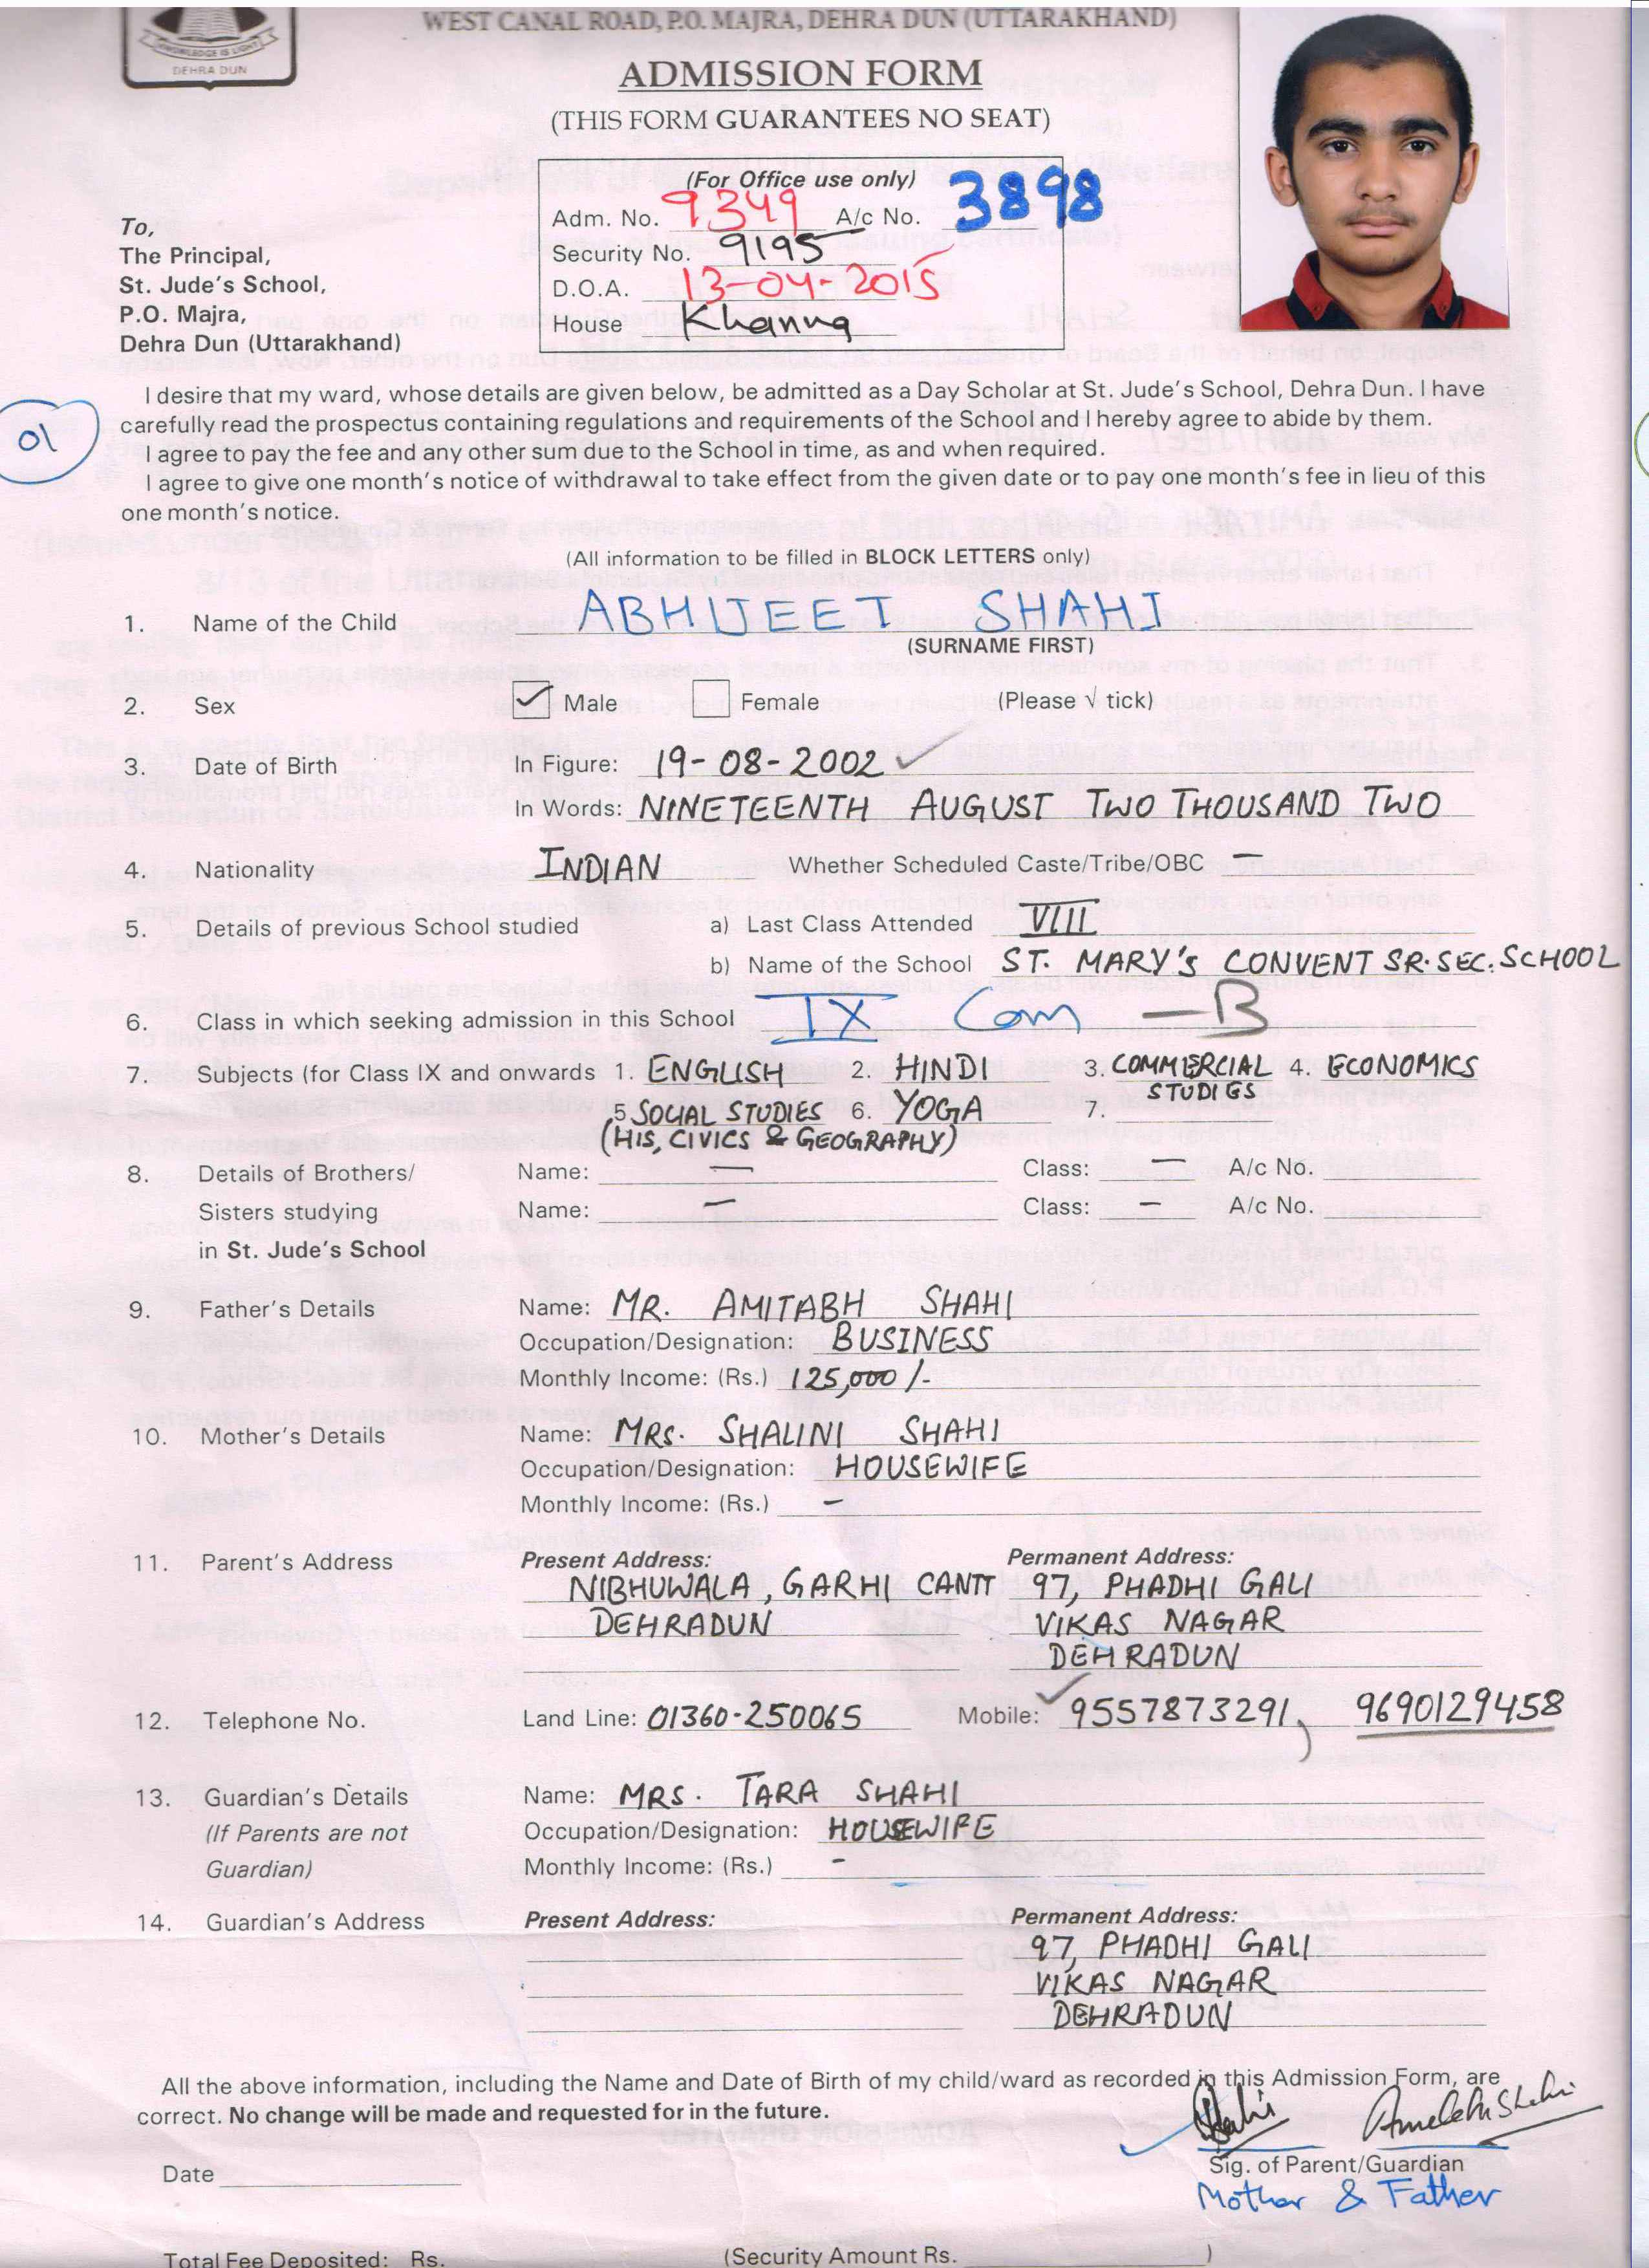 WEST CANAL ROAD, P.O. MAJRA, DEHRA DUN (UTTARAKHAND)
KNOWLEDGE IS LIGHT
DEHRA DUN
ADMISSION FORM
(THIS FORM GUARANTEES NO SEAT)
(For Office use only)
Adm. No. 9349 A/c No. 3898
Security No. 9195
D.O.A. 13-04-2015
House Khanna
To,
The Principal,
St. Jude's School,
P.O. Majra,
Dehra Dun (Uttarakhand)
I desire that my ward, whose details are given below, be admitted as a Day Scholar at St. Jude's School, Dehra Dun. I have
carefully read the prospectus containing regulations and requirements of the School and I hereby agree to abide by them.
01
I agree to pay the fee and any other sum due to the School in time, as and when required.
I agree to give one month's notice of withdrawal to take effect from the given date or to pay one month's fee in lieu of this
one month's notice.
(All information to be filled in BLOCK LETTERS only)
1. Name of the Child ABHIJEET SHAHI
(SURNAME FIRST)
2. Sex ✓ Male Female (Please √ tick)
3. Date of Birth In Figure: 19-08-2002 ✓
In Words: NINETEENTH AUGUST TWO THOUSAND TWO
4. Nationality INDIAN Whether Scheduled Caste/Tribe/OBC —
5. Details of previous School studied a) Last Class Attended VIII
b) Name of the School ST. MARY'S CONVENT SR. SEC. SCHOOL
6. Class in which seeking admission in this School IX Com — B
7. Subjects (for Class IX and onwards 1. ENGLISH 2. HINDI 3. COMMERCIAL 4. ECONOMICS
STUDIES
5 SOCIAL STUDIES 6. YOGA 7.
(HIS, CIVICS & GEOGRAPHY)
8. Details of Brothers/ Name: — Class: — A/c No.
Sisters studying Name: — Class: — A/c No.
in St. Jude's School
9. Father's Details Name: MR. AMITABH SHAHI
Occupation/Designation: BUSINESS
Monthly Income: (Rs.) 125,000/-
10. Mother's Details Name: MRS. SHALINI SHAHI
Occupation/Designation: HOUSEWIFE
Monthly Income: (Rs.) —
11. Parent's Address Present Address: Permanent Address:
NIBHUWALA, GARHI CANTT 97, PHADHI GALI
DEHRADUN VIKAS NAGAR
DEHRADUN
12. Telephone No. Land Line: 01360-250065 Mobile: ✓ 9557873291, 9690129458
13. Guardian's Details Name: MRS. TARA SHAHI
(If Parents are not Occupation/Designation: HOUSEWIFE
Guardian) Monthly Income: (Rs.) -
14. Guardian's Address Present Address: Permanent Address:
97, PHADHI GALI
VIKAS NAGAR
DEHRADUN
All the above information, including the Name and Date of Birth of my child/ward as recorded in this Admission Form, are
correct. No change will be made and requested for in the future.
Date
Sig. of Parent/Guardian
Mother & Father
Total Fee Deposited: Rs. (Security Amount Rs. )